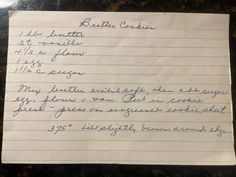 Butter Cookies
1 lb butter
2 t vanilla
4 1/2 c flour
1 egg
1 1/2 c sugar
Mix butter until soft, then add sugar
egg, flour & van. Put in cookie
press - press on ungreased cookie sheet
375° till slightly brown around edge